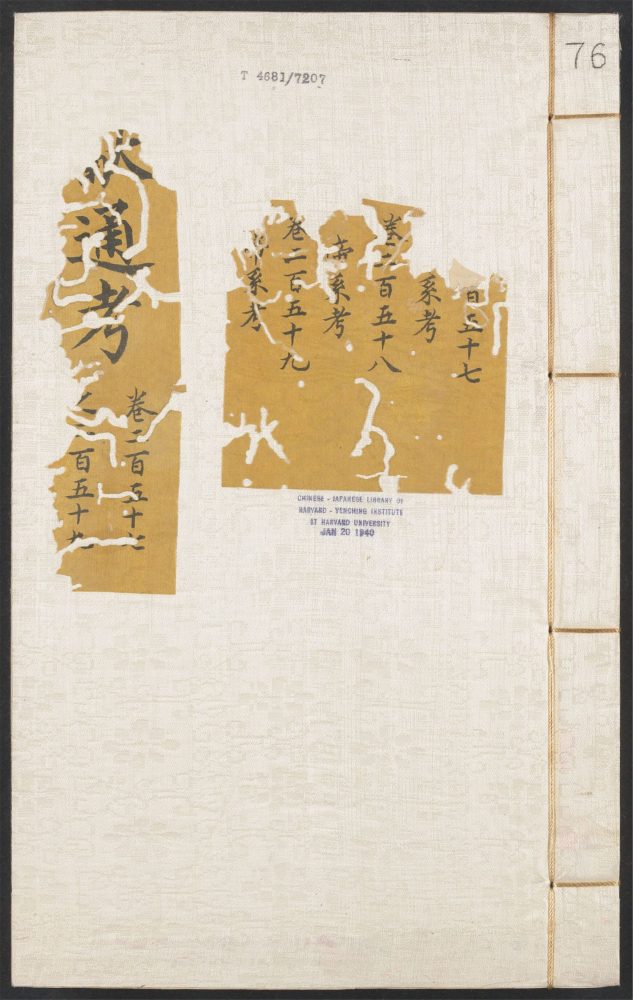 76
T 4681/7207
百五十七
系考
卷二百五十八
帝系考
卷二百五十九
系考
通考
卷二百五十七
二百五十九
CHINESE - JAPANESE LIBRARY OF
HARVARD - YENCHING INSTITUTE
AT HARVARD UNIVERSITY
JAN 20 1940